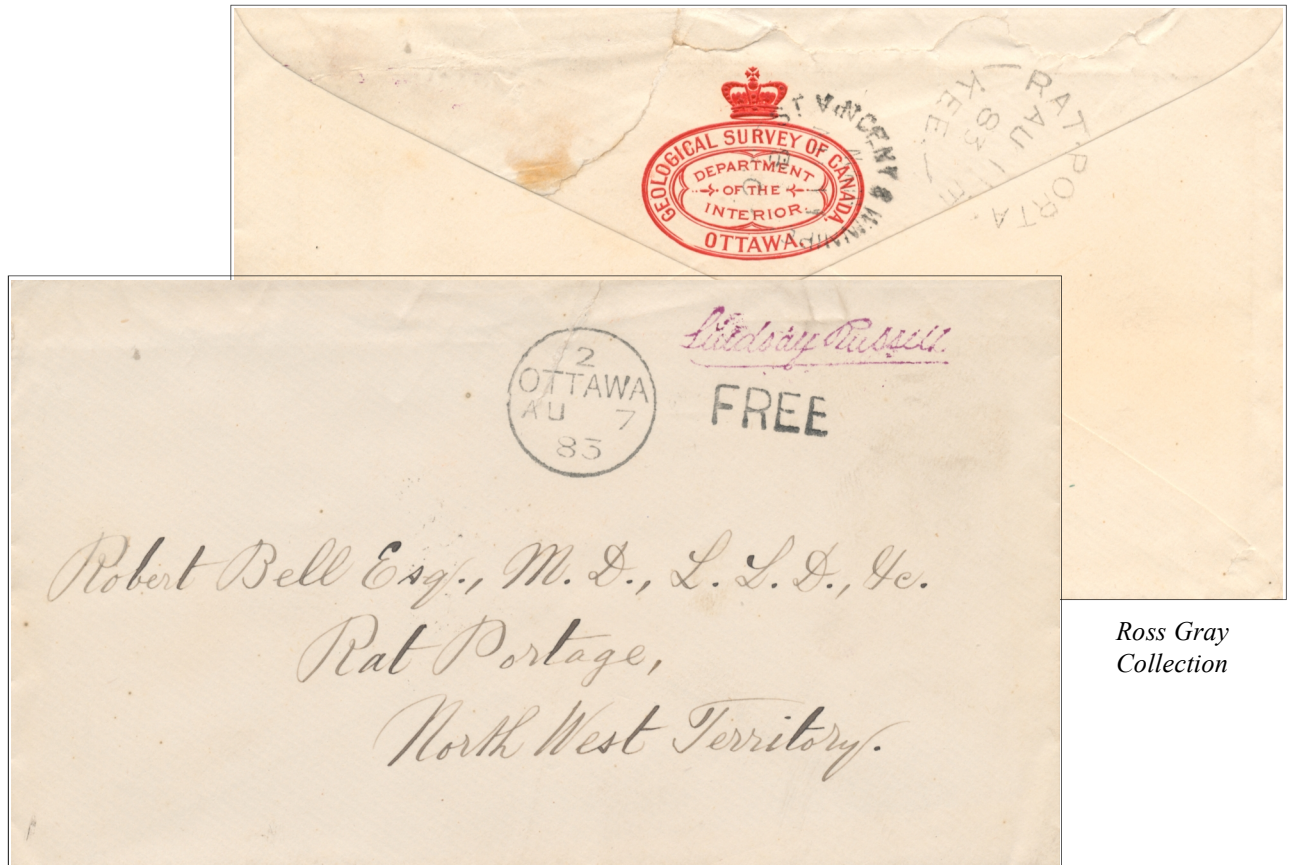 GEOLOGICAL SURVEY OF CANADA.
DEPARTMENT
OF THE
INTERIOR
OTTAWA.
ST VINCENT &
RAT PORTA
AU 11
83
KEE
2
OTTAWA
AU 7
83
Lindsay Russell
FREE
Robert Bell Esq., M. D., L. L. D., &c.
Rat Portage,
North West Territory.
Ross Gray
Collection